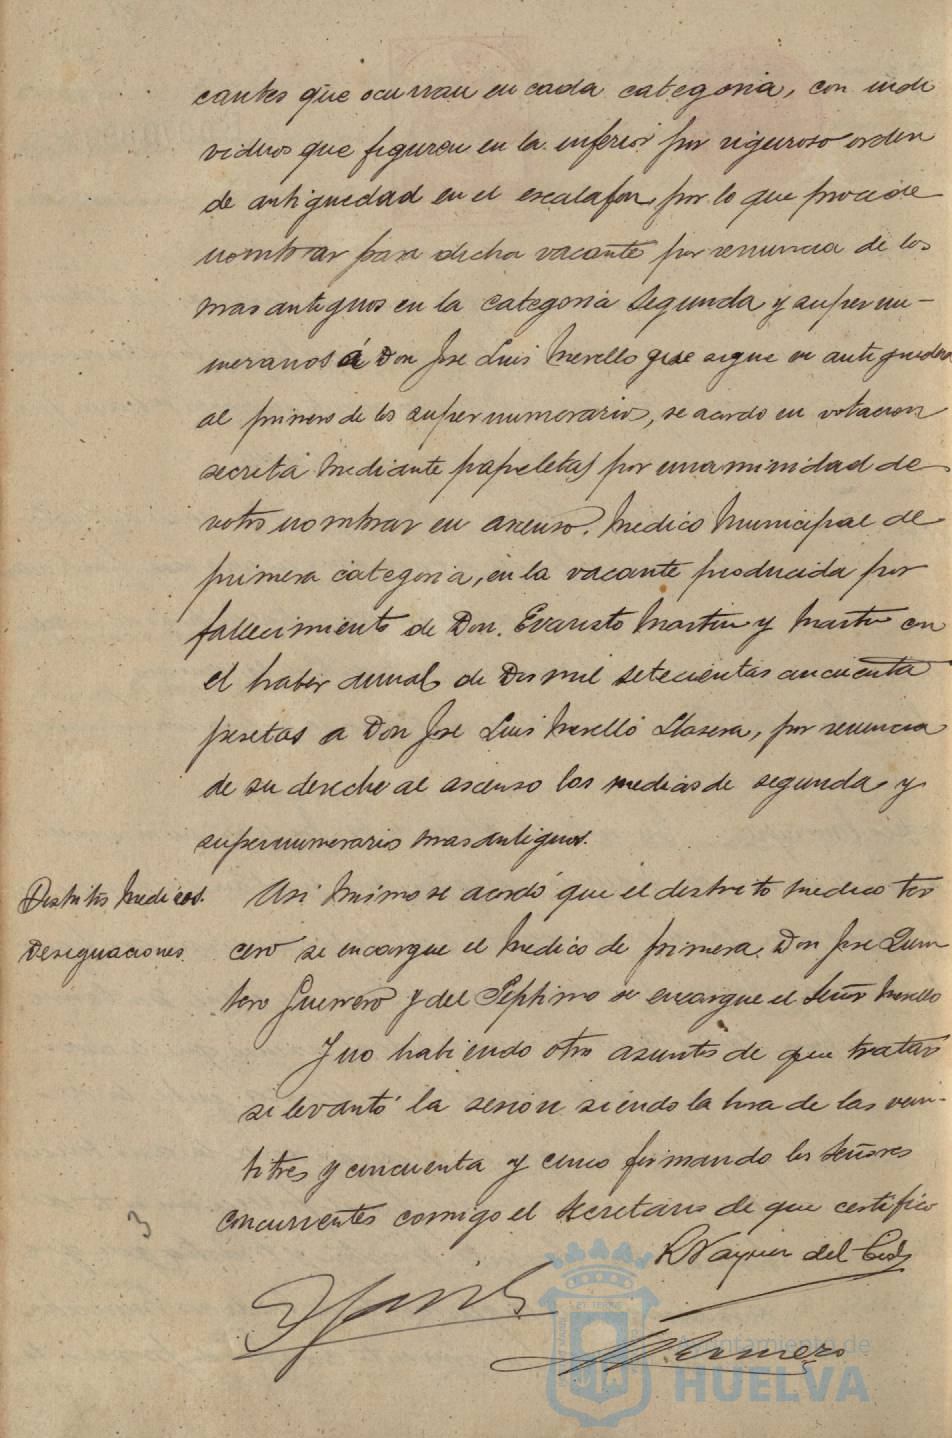 cantes que ocurran en cada categoria, con indi
viduos que figuren en la inferior por riguroso orden
de antiguedad en el escalafon, por lo que procede
nombrar para dicha vacante por renuncia de los
mas antiguos en la categoria segunda y supernu-
merarios á Don Jose Luis Merello que sigue en antiguedad
al primero de los supernumerarios, se acordo en votacion
secreta mediante papeletas por unanimidad de
votos nombrar en ascenso, Medico Municipal de
primera categoria, en la vacante producida por
fallecimiento de Don Evaristo Martin y Martin con
el haber anual de Dos mil setecientas cincuenta
pesetas a Don Jose Luis Merello Llasera, por renuncia
de su derecho al ascenso los medicos de segunda y
supernumerarios mas antiguos.
Distritos Medicos.
Designaciones.
Asi mismo se acordó que el distrito medico ter
cero se encargue el Medico de primera Don Jose Quin
tero Guerrero y del Septimo se encargue el Señor Merello
Y no habiendo otros asuntos de que tratar
se levantó la sesion siendo la hora de las vein-
titres y cincuenta y cinco firmando los Señores
concurrentes conmigo el Secretario de que certifico
3
del
Romero
Ayuntamiento de
HUELVA